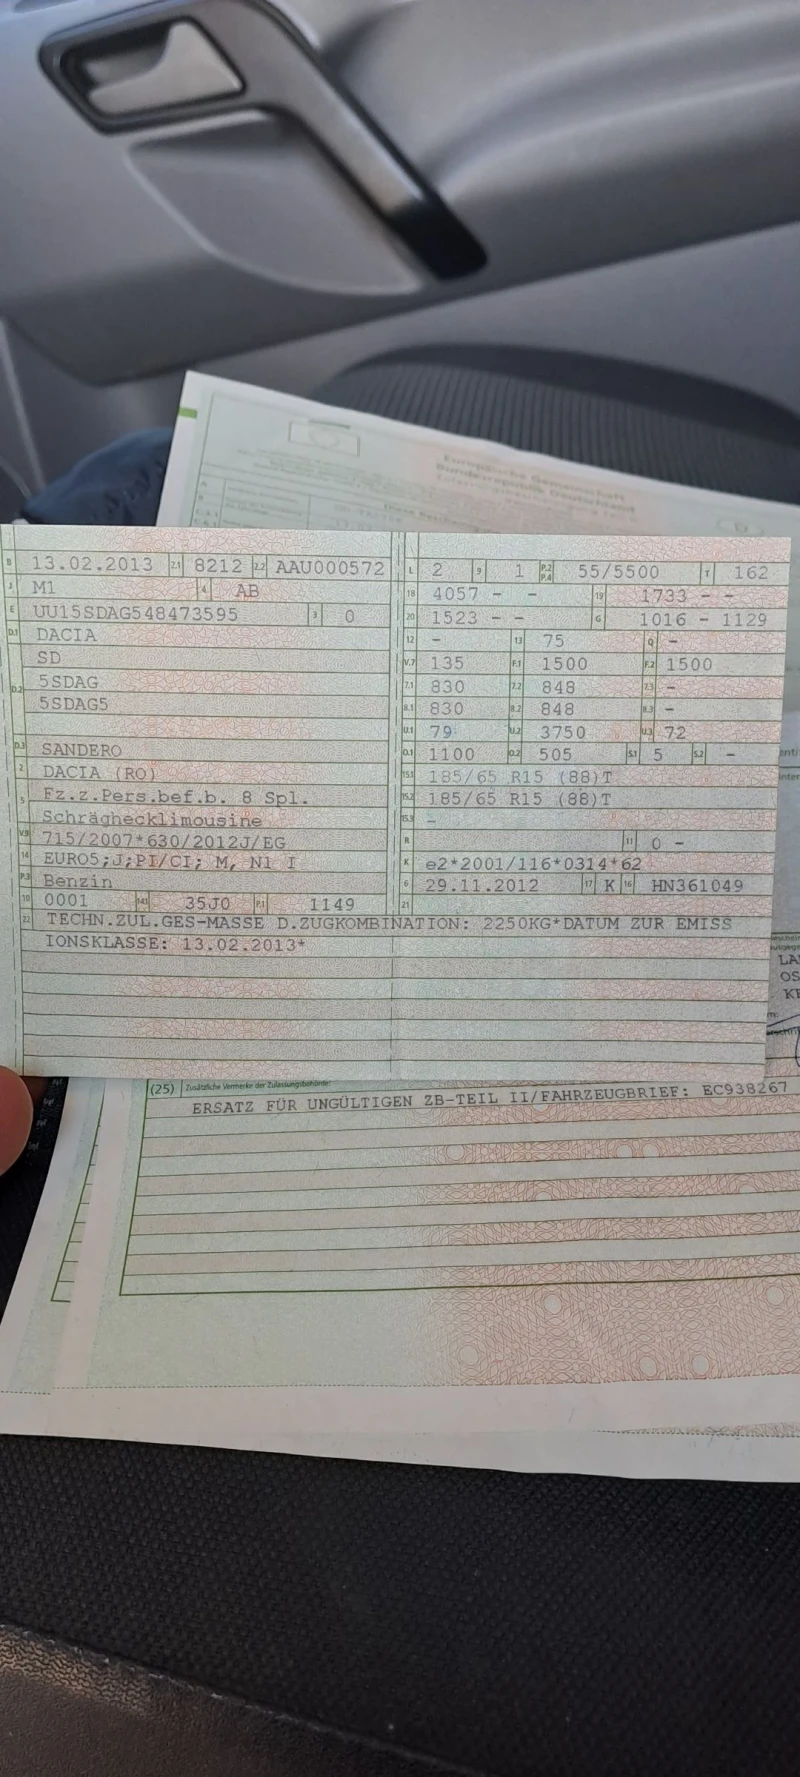 Europäische Gemeinschaft
Bundesrepublik Deutschland
B 13.02.2013 2.1 8212 2.2 AAU000572
J M1 4 AB
E UU15SDAG548473595 3 0
D.1 DACIA
D.2 SD
5SDAG
5SDAG5
D.3 SANDERO
2 DACIA (RO)
5 Fz.z.Pers.bef.b. 8 Spl.
Schräghecklimousine
V.9 715/2007*630/2012J/EG
14 EURO5;J;PI/CI; M, N1 I
P.3 Benzin
10 0001 14.1 35J0 P.1 1149
L 2 9 1 P.2 P.4 55/5500 T 162
18 4057 - - 19 1733 - -
20 1523 - - G 1016 - 1129
12 - 13 75 Q -
V.7 135 F.1 1500 F.2 1500
7.1 830 7.2 848 7.3 -
8.1 830 8.2 848 8.3 -
U.1 79 U.2 3750 U.3 72
O.1 1100 O.2 505 S.1 5 S.2 -
15.1 185/65 R15 (88)T
15.2 185/65 R15 (88)T
15.3 -
R 11 0 -
K e2*2001/116*0314*62
6 29.11.2012 17 K 16 HN361049
21
22 TECHN.ZUL.GES-MASSE D.ZUGKOMBINATION: 2250KG*DATUM ZUR EMISS
IONSKLASSE: 13.02.2013*
(25) Zusätzliche Vermerke der Zulassungsbehörde:
ERSATZ FÜR UNGÜLTIGEN ZB-TEIL II/FAHRZEUGBRIEF: EC938267